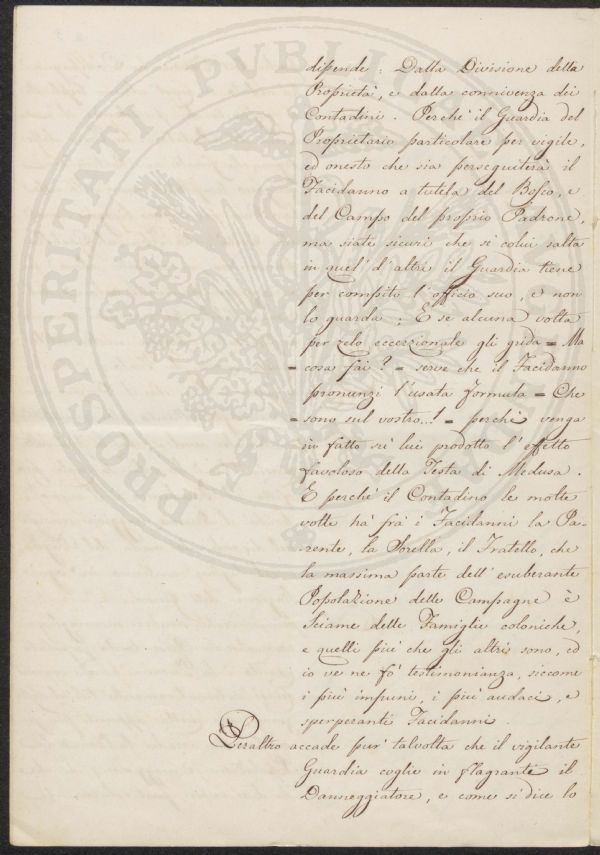 dipende: Dalla Divisione della
Proprietà, e dalla connivenza dei
Contadini. Perchè il Guardia del
Proprietario particolare per vigile,
ed onesto che sia perseguiterà il
Facidanno a tutela del Bosco, e
del Campo del proprio Padrone,
ma siate sicuri che se colui salta
in quel d'altri il Guardia tiene
per compito l'officio suo, e non
lo guarda; E se alcuna volta
per zelo eccezzionale gli grida = Ma
= cosa fai? = serve che il Facidanno
pronunzi l'usata formula = Che
= sono sul vostro..! = perchè venga
in fatto su lui prodotto l'effetto
favoloso della Testa di Medusa.
E perchè il Contadino le molte
volte hà frà i Facidanni la Pa-
rente, la Sorella, il Fratello, che
la massima parte dell'esuberante
Popolazione delle Campagne è
Sciame delle Famiglie coloniche,
e quelli più che gli altri sono, ed
io ve ne fò testimonianza, siccome
i più impuni, i più audaci, e
sperperanti Facidanni.
Peraltro accade pur talvolta che il vigilante
Guardia coglie in flagrante il
Danneggiatore, e come si dice lo
PROSPERITATI PUBLI